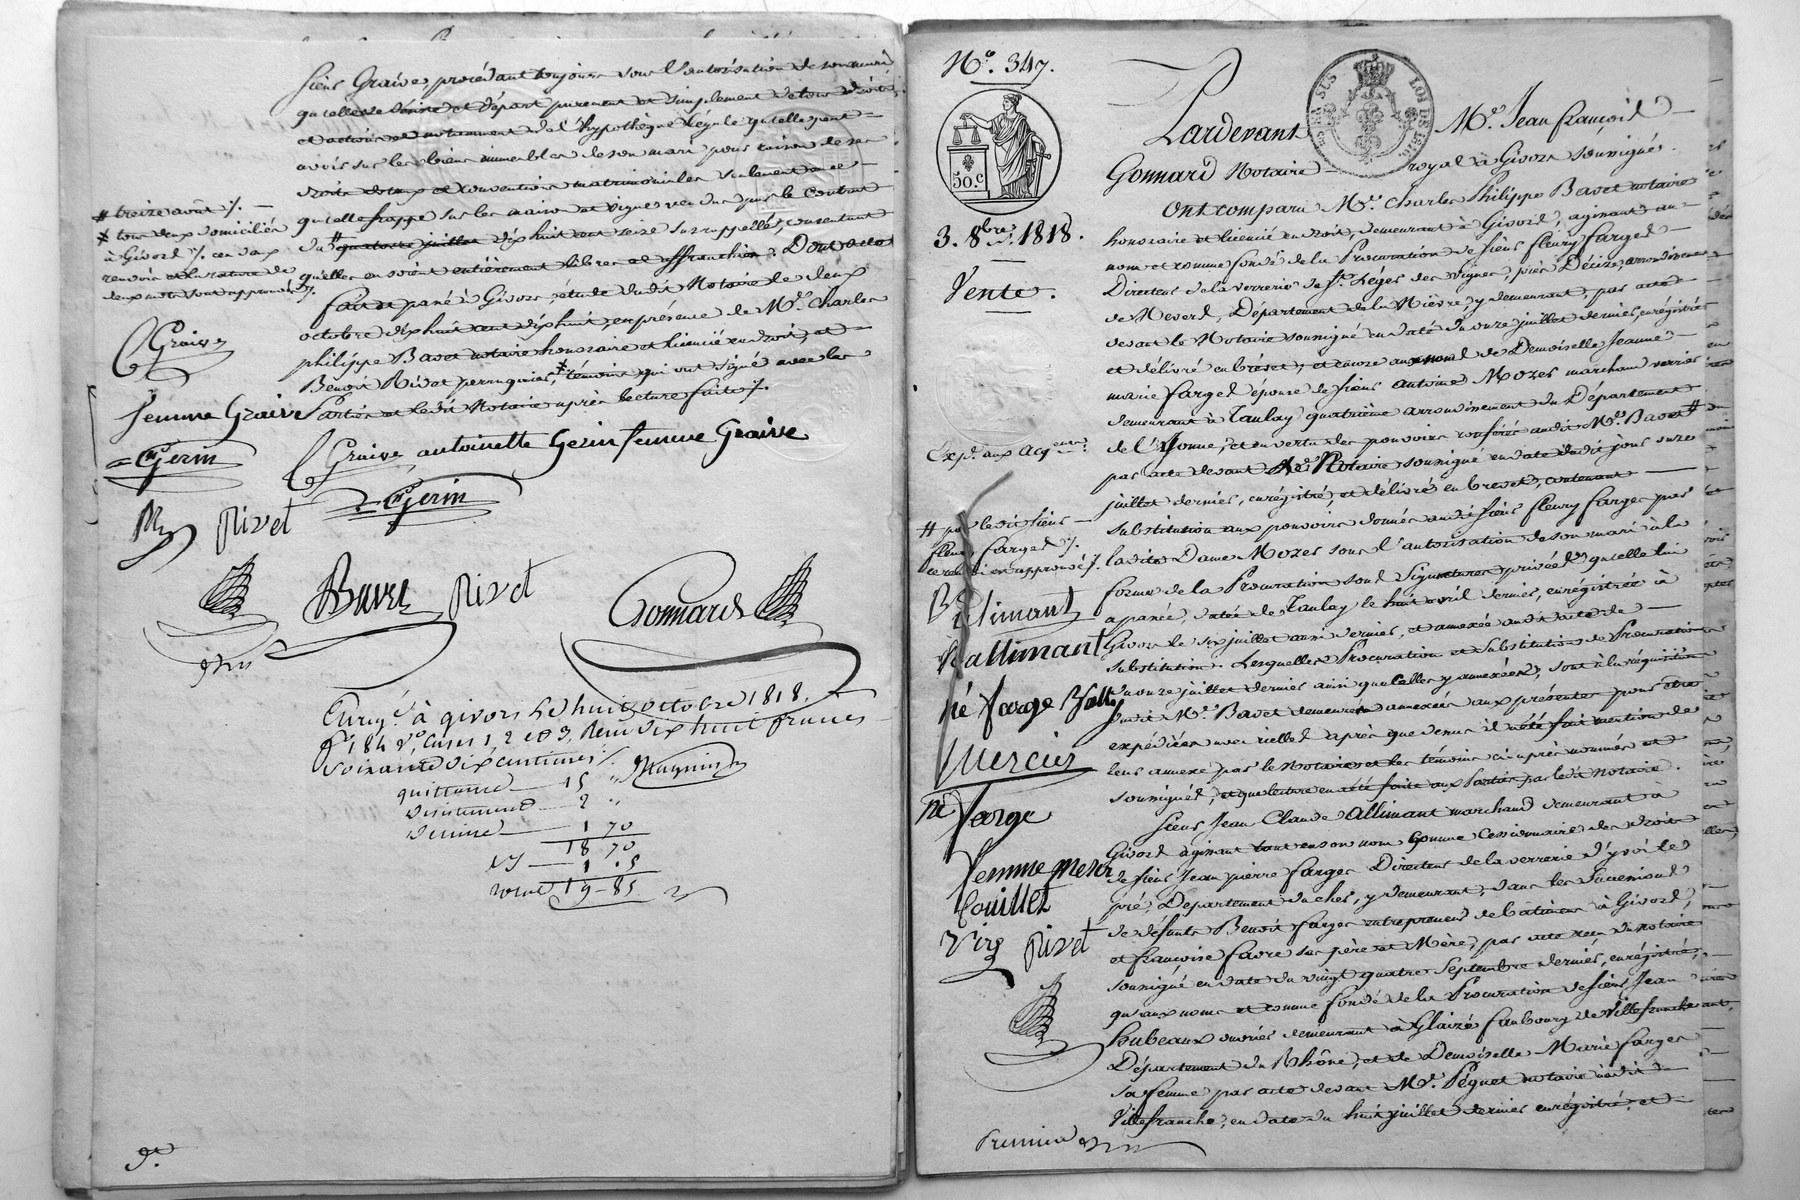 Siens Graive, procédant toujours sous l'autorisation de son mari
qu'elle se désiste et départ purement et simplement de tous droits
et actions et notamment de l'hypothèque légale qu'elle peut
avoir sur les biens immeubles de son mari pour raison de ses
droits dotaux et conventions matrimoniales seulement en ce
qu'elle frappe sur les maison et vigne vendus par le contrat
du # quatorze juillet dix huit cent seize sus rappellé, consentant
qu'elles en soient entièrement libres et affranchies. Dont acte
fait et passé à Givors, étude dudit Notaire le deux
octobre dix huit cent dix huit, en présence de Mr. Charles
philippe Bavet notaire honoraire et licencié en droit, et
Benoit Rivet perruquier, * témoins qui ont signé avec les
Parties et ledit Notaire après lecture faite /.
# treize août /.
* tous deux domiciliés
à Givors /. ces deux
renvois et la rature de
deux mots sont approuvés /.
Graive
femme Graive
Gerin
Graive antoinette Gerin femme Graive
Gerin
Rivet
Bavet Rivet Gonnard
Enregé. à givors le huit octobre 1818.
fo. 184 Vo. Cases 1, 2 et 3, Reçu dix huit francs
soixante dix centimes /.
quittance 15 "
Désistement 2 "
Décime 1 70
18 70
1 . 5
total 19 - 85
9e.
No. 347.
50 c
3. 8bre. 1818.
Vente.
Expé. aux Acqenrs.
Pardevant Me. Jean françois
Gonnard Notaire royal à Givors soussigné.
Ont comparu Mr. Charles Philippe Bavet notaire
honoraire et licencié en droit, demeurant à Givors, agissant au
nom et comme fondé de la Procuration de siens fleury farges
Directeur de la verrerie de St. Léger des vignes, près Décize, arrondissement
de Nevers, Département de la Nièvre y demeurant, par acte
devant le Notaire soussigné en date du onze juillet dernier, enregistré
et délivré en brevet; et encore au nom de Demoiselle Jeanne
marie farges épouse de siens antoine Mozes marchand verrier
demeurant à Taulay quatrième arrondissement du Département
de l'Yonne, et en vertu des pouvoirs conférés audit Mr. Bavet #
par acte devant le Notaire soussigné en date dudit jour onze
juillet dernier, enregistré, et délivré en brevet, contenant
substitution aux pouvoirs donnés audit siens fleury farges par
ladite Dame Mozes sous l'autorisation de son mari à la
forme de la Procuration sous signature privée qu'elle lui
a passée, datée de Taulay le huit avril dernier, enregistrée à
Givors le six juillet aussi dernier, et annexée audit acte de
substitution. Lesquelles Procuration et Substitution de Procuration
du onze juillet dernier ainsi que celles y annexées, sont à la réquisition
dudit Mr. Bavet demeurées annexées aux présentes pour être
expédiées avec icelles après que dessus il a été fait mention de
leur annexe par le Notaire et les témoins ci après nommés et
soussignés, et que lecture en a été faite aux Parties par le dit Notaire.
Siens Jean Claude Allimant marchand demeurant à
Givors agissant tant en son nom comme Cessionnaire des droits
de siens Jean pierre farges Directeur de la verrerie d'yvoi le
pré, Département du cher, y demeurant, dans les Successions
de défunts Benoit farges entrepreneur de bâtimens à Givors,
et françoise favre ses père et Mère, par acte reçu du notaire
soussigné en date du vingt quatre Septembre dernier, enregistré,
qu'au nom et comme fondé de la Procuration de siens Jean
Loubeaux demeurant à Glaizé faubourg de Villefranche
Département du Rhône, et de Demoiselle Marie farges
sa femme par acte devant Mr. Péguet notaire audit
Villefranche, en date du huit juillet dernier enregistré, et
# par ledit siens
fleury farges /.
ce renvoi est approuvé /.
Allimant
né farge
Mercier
né farge
femme Mercier
Couillet
Rivet
Premier